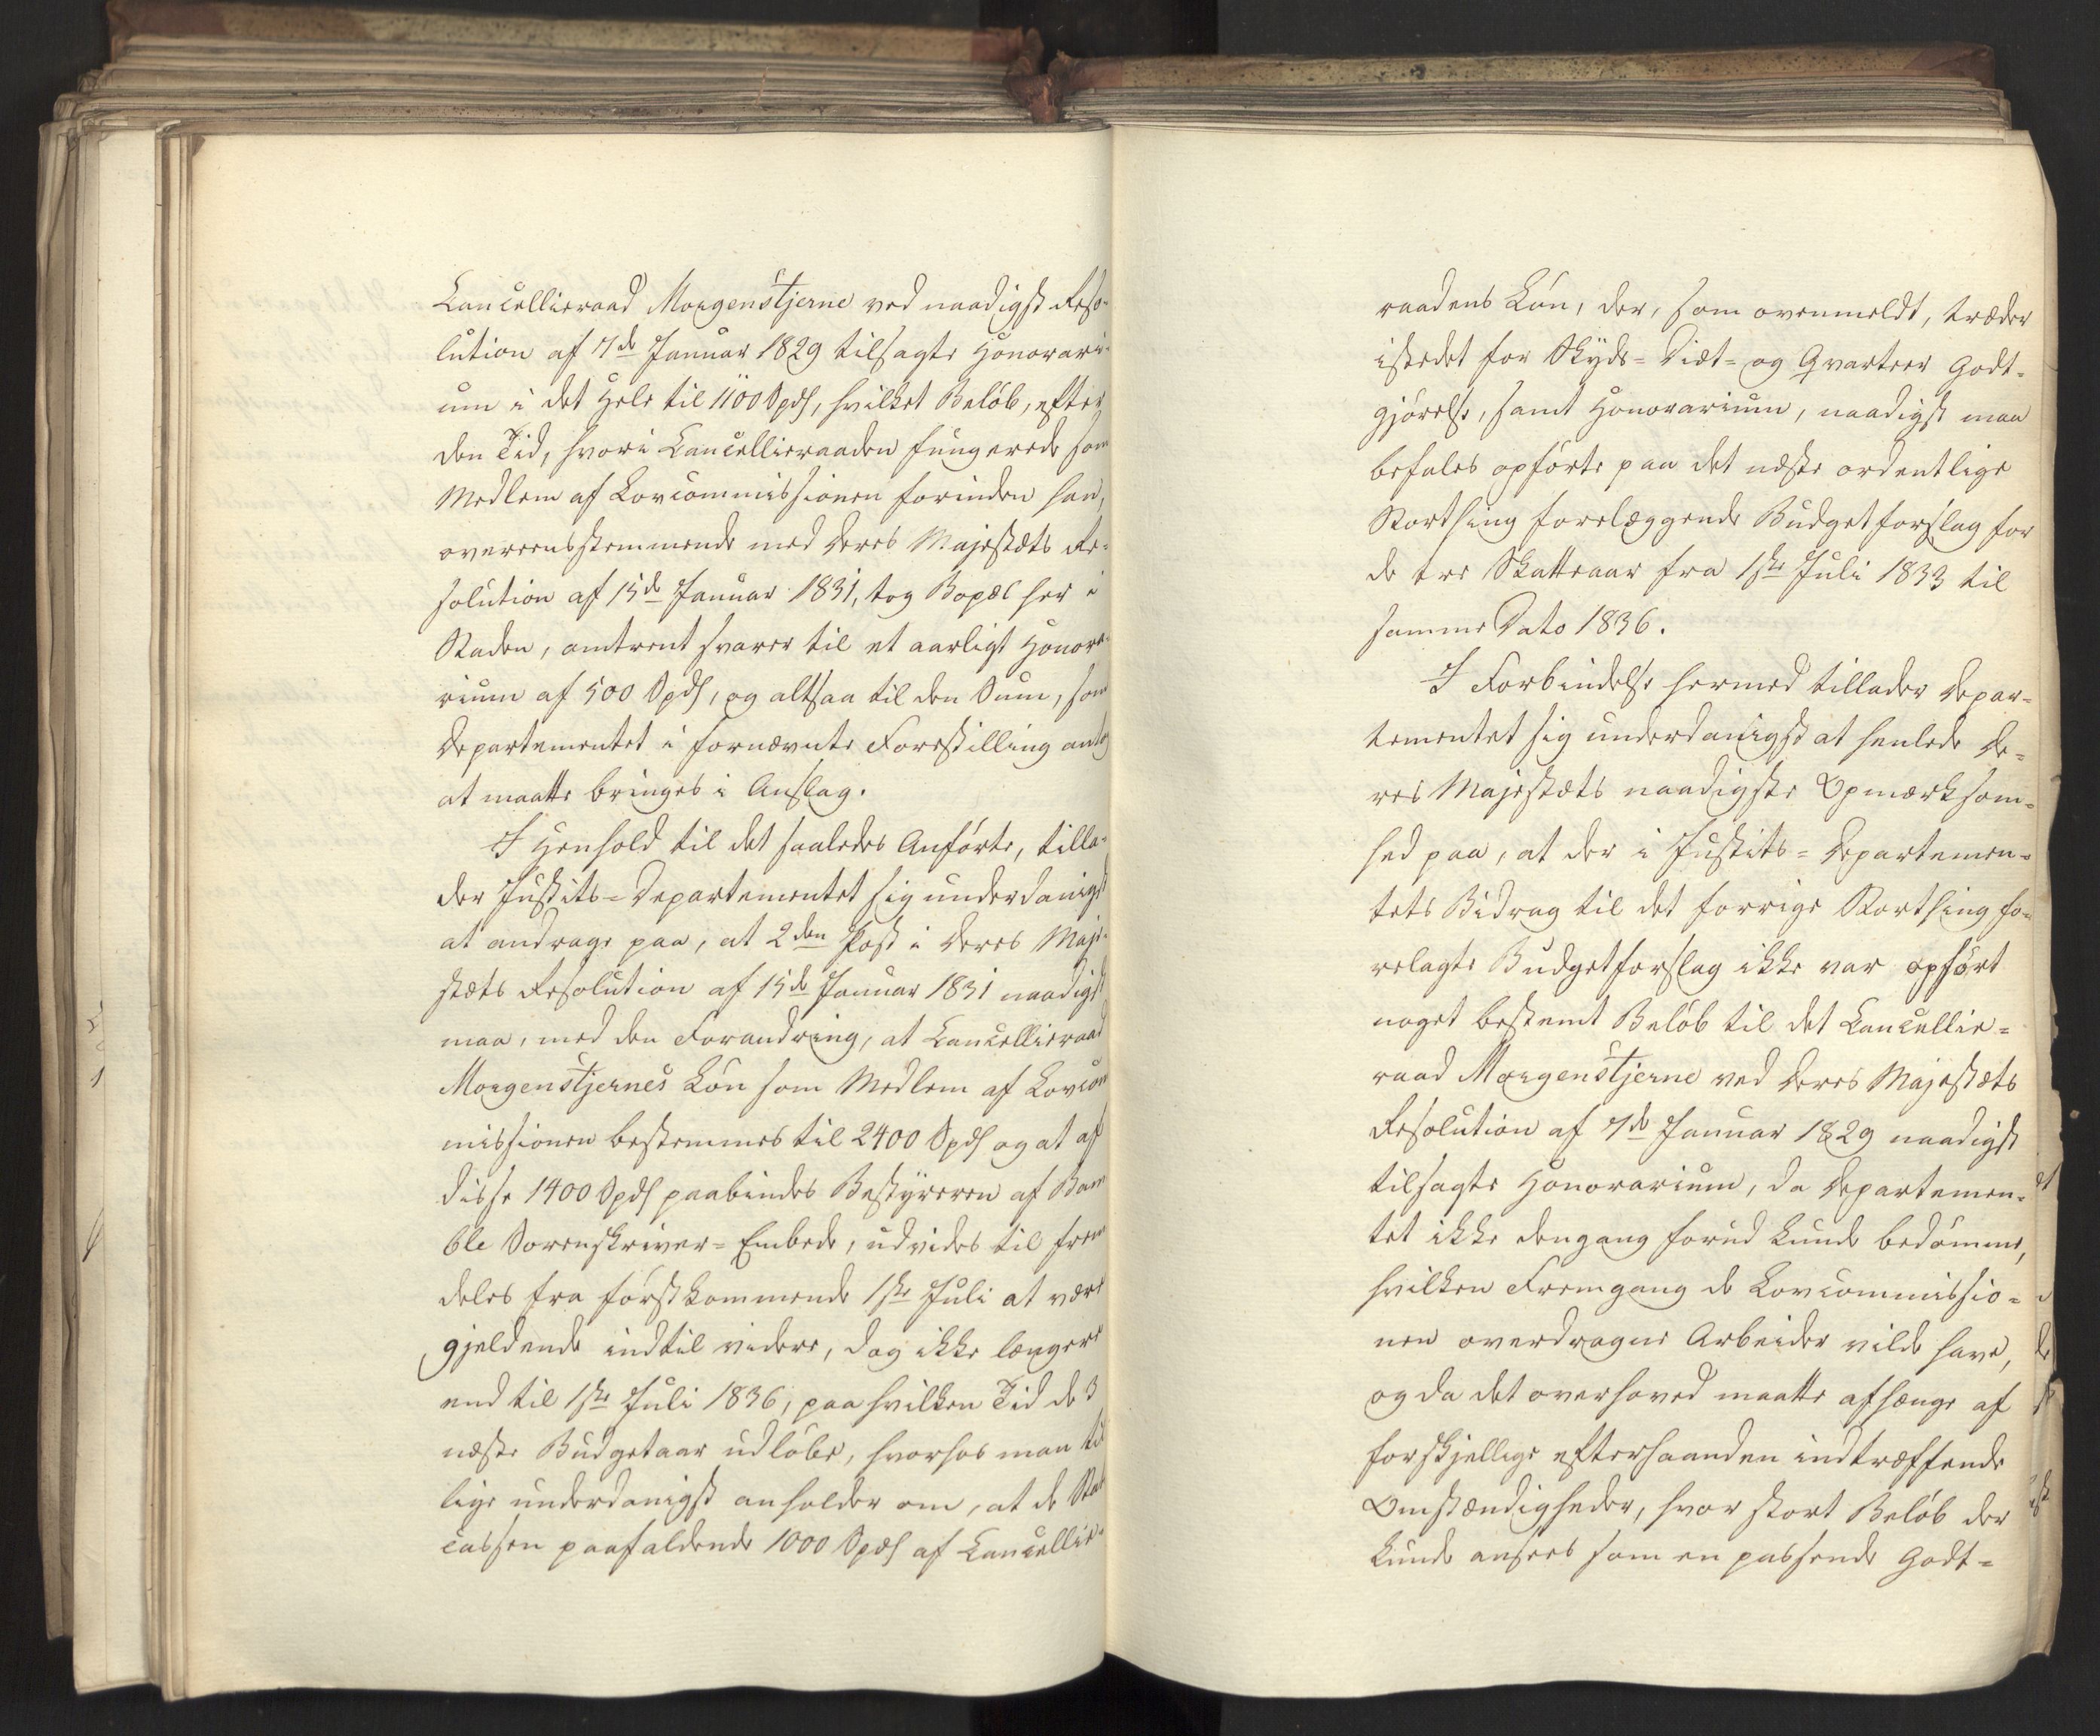 Cancellieraad Morgenstjerne ved naadigst Reso-
lution af 7de Januar 1829 tilsagte Honorari-
um i det Hele til 1100 Spd, hvilket Beløb, efter
den Tid, hvori Cancellieraaden fungerede som
Medlem af Lovcommissionen forinden han,
overeensstemmende med Deres Majestæts Re-
solution af 15de Januar 1831, tog Bopæl her i
Staden, omtrent svarer til et aarligt Honora-
rium af 500 Spd, og altsaa til den Sum, som
Departementet i fornævnte Forestilling antog
at maatte bringes i Anslag.
I Henhold til det saaledes Anførte, tilla-
der Justits-Departementet sig underdanigst
at andrage paa, at 2den Post i Deres Maje-
stæts Resolution af 15de Januar 1831 naadigst
maa, med den Forandring, at Cancellieraad
Morgenstjernes Løn som Medlem af Lovcom
missionen bestemmes til 2400 Spd og at af
disse 1400 Spd paabindes Bestyreren af Bam
ble Sorenskriver-Embede, udvides til frem
deles fra førstkommende 1ste Juli at være
gjeldende indtil videre, dog ikke længere
end til 1ste Juli 1836, paa hvilken Tid de 3
næste Budgetaar udløbe, hvorhos man til
lige underdanigst anholder om, at de Stats
cassen paafaldende 1000 Spd af Cancellie-
raadens Løn, der, som ovenmeldt, træder
istedet for Skyds- Diæt- og Qvarteer Godt-
gjørelse, samt Honorarium, naadigst maa
befales opførte paa det næste ordentlige
Storthing forelæggende Budgetforslag for
de tre Skatteaar fra 1ste Juli 1833 til
samme Dato 1836.
I Forbindelse hermed tillader Depar-
tementet sig underdanigst at henlede De-
res Majestæts naadigste Opmærksom-
hed paa, at der i Justits-Departemen-
tets Bidrag til det forrige Storthing fo-
relagte Budgetforslag ikke var opført
noget bestemt Beløb til det Cancellie-
raad Morgenstjerne ved Deres Majestæts
Resolution af 7de Januar 1829 naadigst
tilsagte Honorarium, da Departemen-
tet ikke dengang forud kunde bedømme,
hvilken Fremgang de Lovcommissio-
nen overdragne Arbeider vilde have,
og da det overhoved maatte afhænge af
forskjellige efterhaanden indtræffende
Omstændigheder, hvor stort Beløb der
kunde ansees som en passende Godt-